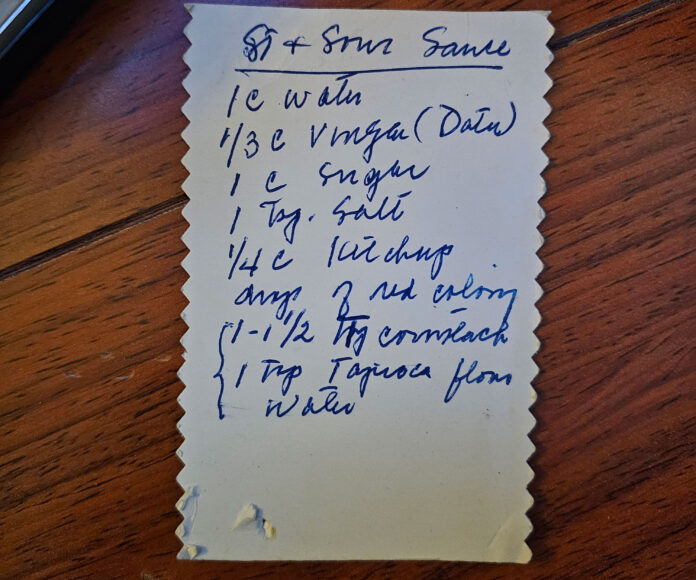 St + Sour Sauce
1 c water
1/3 c Vinger (Datu)
1 c Sugar
1 Tsp. Salt
1/4 c Kitchup
drops of red coloring
1-1 1/2 Tsp cornstach
1 Tsp Tapioca flour
water